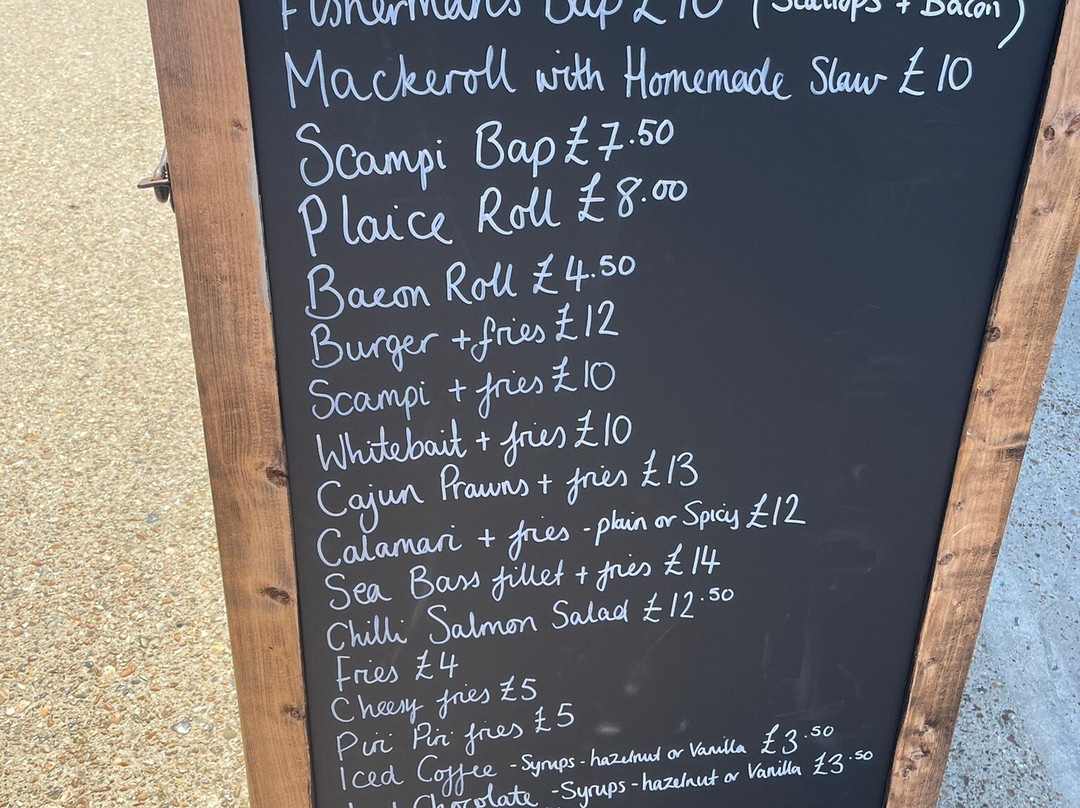 Fishermans Bap £10 (Scallops + Bacon)
Mackeroll with Homemade Slaw £10
Scampi Bap £7.50
Plaice Roll £8.00
Bacon Roll £4.50
Burger + fries £12
Scampi + fries £10
Whitebait + fries £10
Cajun Prawns + fries £13
Calamari + fries - plain or Spicy £12
Sea Bass fillet + fries £14
Chilli Salmon Salad £12.50
Fries £4
Cheesy fries £5
Piri Piri fries £5
Iced Coffee - Syrups - hazelnut or Vanilla £3.50
Chocolate - Syrups - hazelnut or Vanilla £3.50